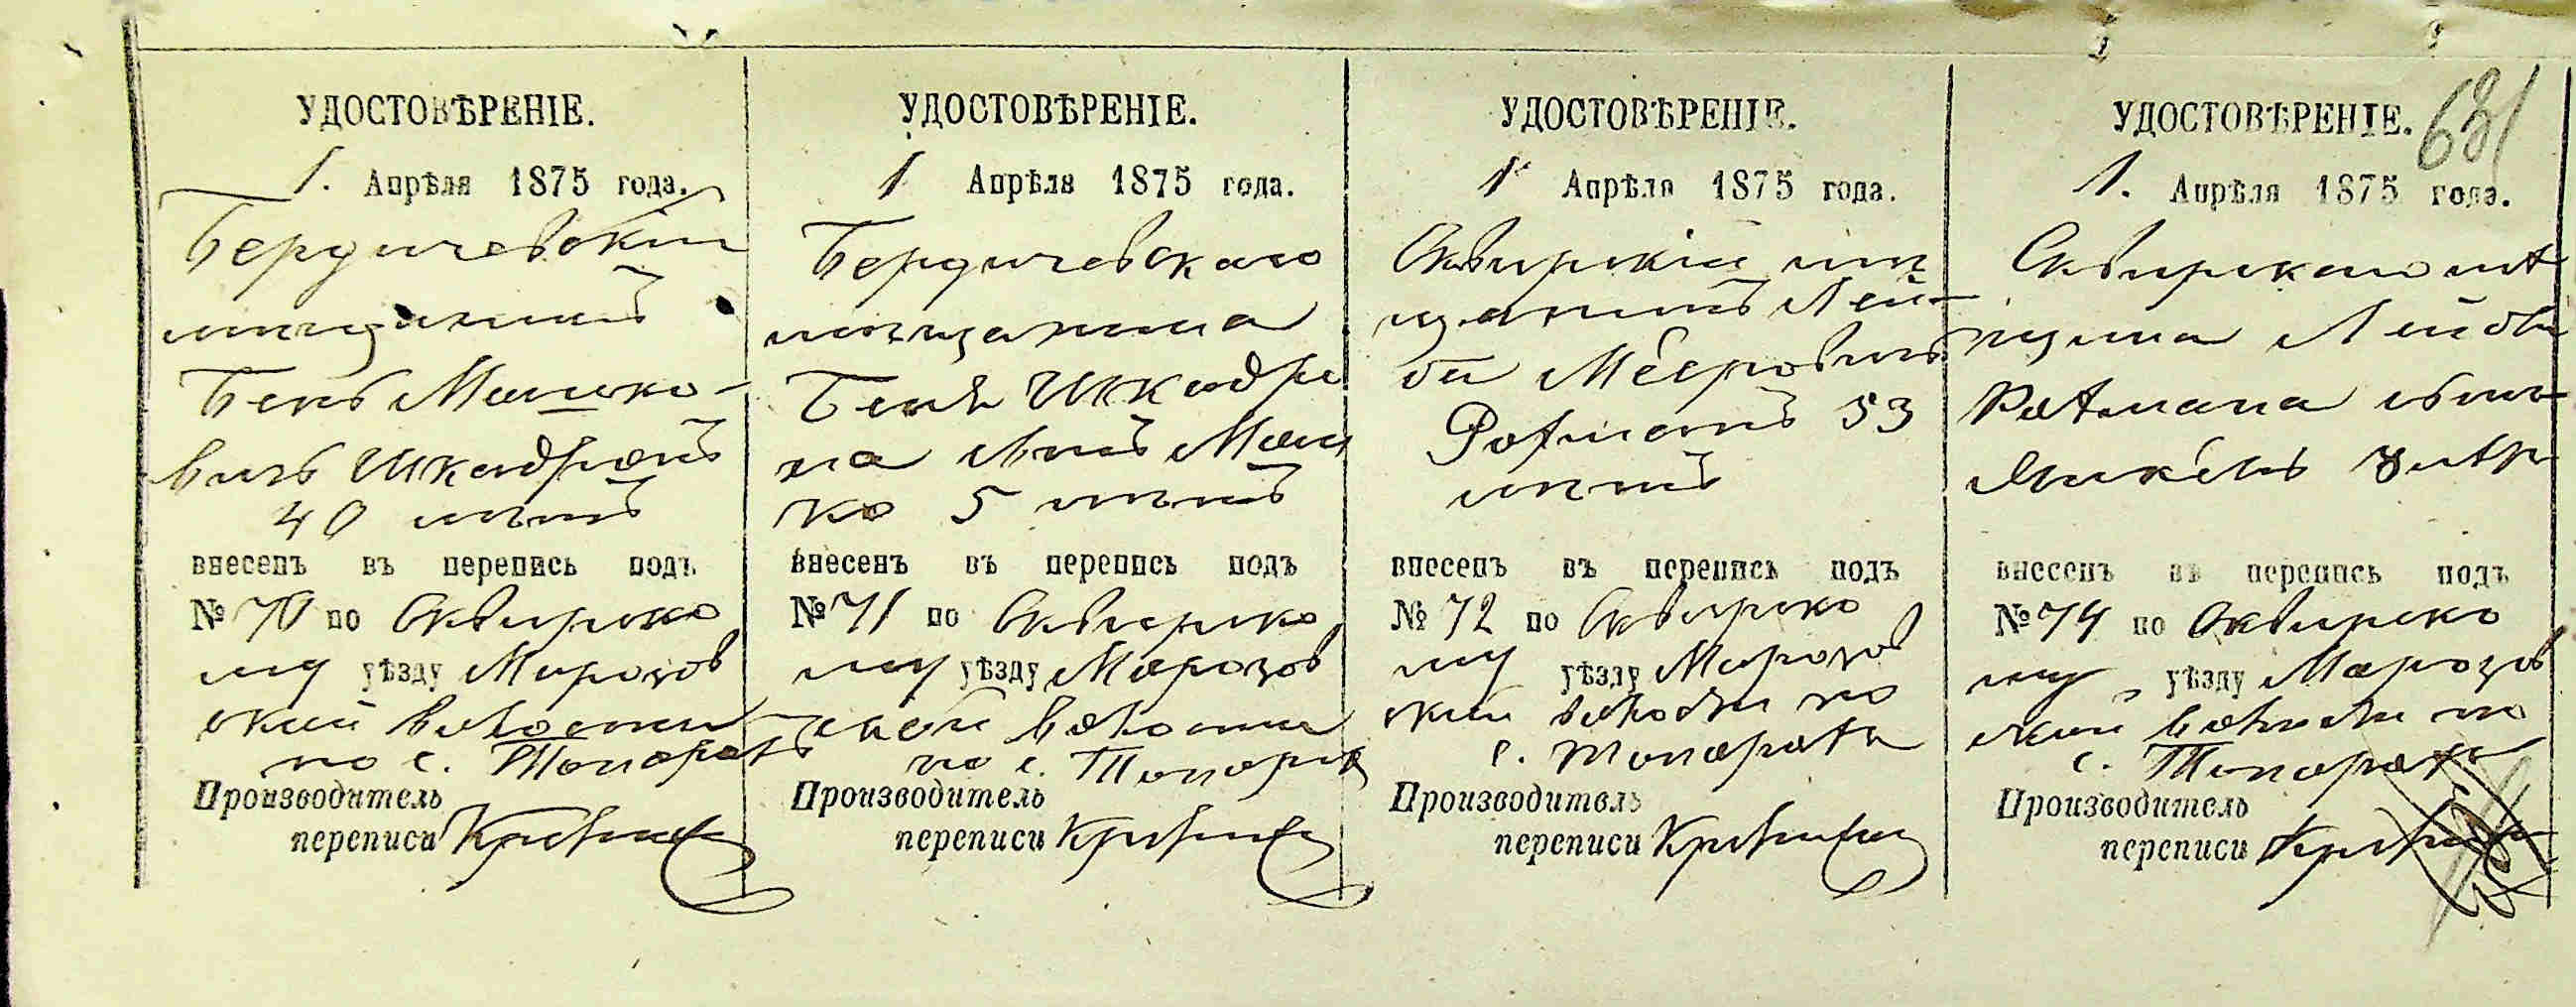 УДОСТОВѢРЕНІЕ.
1. Апрѣля 1875 года.
Бердичевскій
мѣщанинъ
Бень Мошко-
вичъ Шкадронъ
40 лѣтъ
внесенъ въ перепись подъ
№ 70 по Сквирско
му уѣзду Морозов
ской волости
по с. Топоратъ
Производитель
переписи
УДОСТОВѢРЕНІЕ.
1 Апрѣля 1875 года.
Бердичевскаго
мѣщанина
Беня Шкадро
на сынъ Мош
ко 5 лѣтъ
внесенъ въ перепись подъ
№ 71 по Сквирско
му уѣзду Морозов
ской волости
по с. Топоры
Производитель
переписи
УДОСТОВѢРЕНІЕ.
1 Апрѣля 1875 года.
Сквирскій мѣ
щанинъ Лей-
ба Мееровичъ
Ротманъ 53
лѣтъ
внесенъ въ перепись подъ
№ 72 по Сквирско
му уѣзду Морозов
ской волости по
с. Топората
Производитель
переписи
УДОСТОВѢРЕНІЕ. 631
1. Апрѣля 1875 года.
Сквирскаго мѣ
щина Лейбы
Ротмана сынъ
8 лѣтъ
внесенъ въ перепись подъ
№ 74 по Сквирско
му уѣзду Морозов
ской волости по
с.
Производитель
переписи